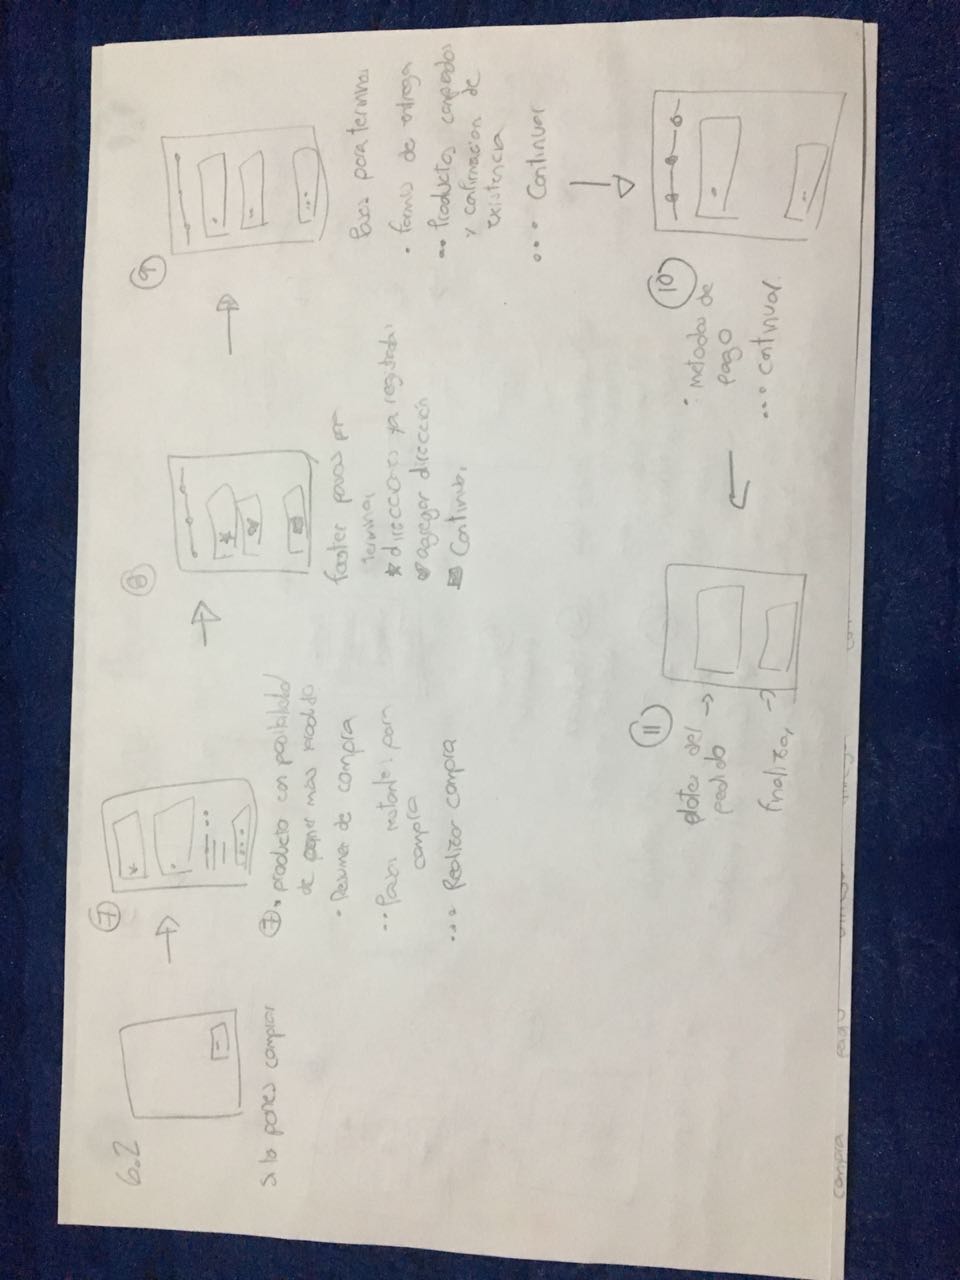 6.2
Si le pones comprar
7
7
• producto con posibilidad
de poner mas
• Resumen de compra
•• Pasos restantes para
compra
••• Realizar compra
8
footer pasos por
terminar
★ direcciones ya registradas
♥ agregar dirección
✉ Continuar
9
Pasos para terminar
• forma de entrega
•• Productos comprados
y confirmación de
existencia
••• Continuar
10
• Metodos de
pago
••• Continuar
11
datos del
pedido →
finalizar →
compra